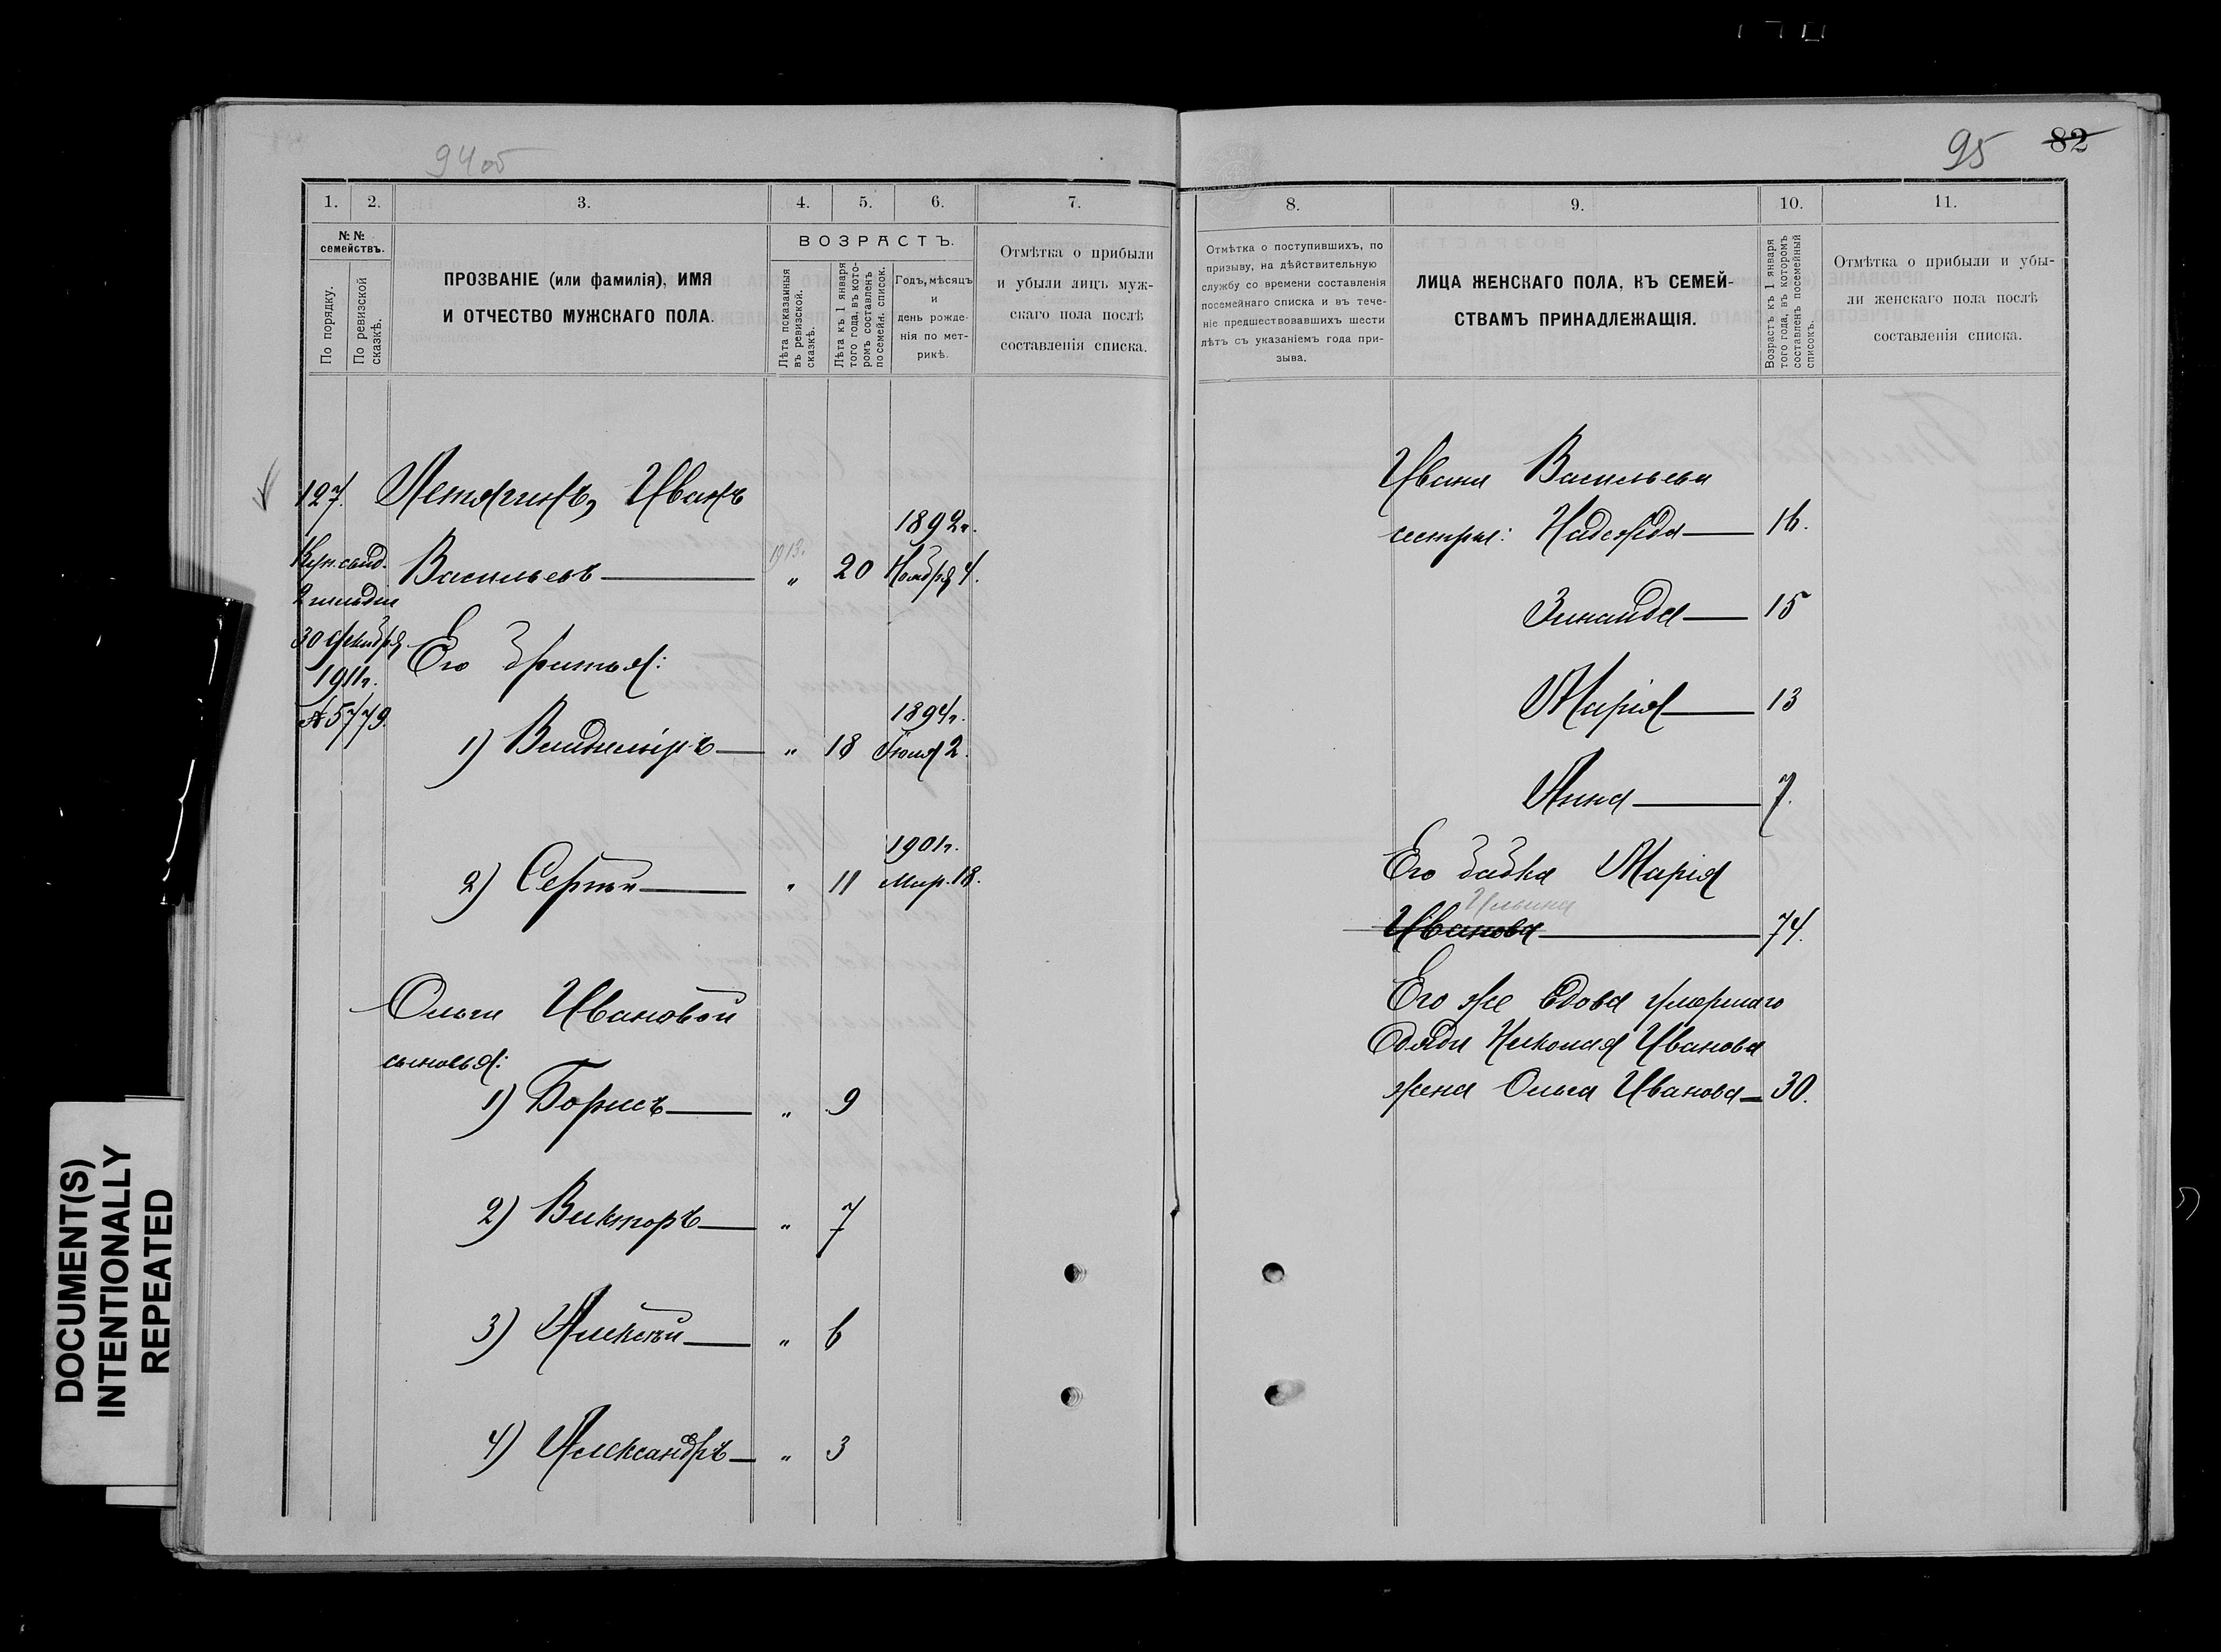 94 об
95 82
1. 2. 3. 4. 5. 6. 7.
№ №
семействъ.
По порядку.
По ревизской
сказкѣ.
ПРОЗВАНІЕ (или фамилія), ИМЯ
И ОТЧЕСТВО МУЖСКАГО ПОЛА.
ВОЗРАСТЪ.
Лѣта показанныя
въ ревизской.
сказкѣ.
Лѣта къ 1 января
того года, въ кото-
ромъ составленъ
посемейн. список.
Годъ, мѣсяцъ
и
день рожде-
нія по мет-
рикѣ.
Отмѣтка о прибыли
и убыли лицъ муж-
скаго пола послѣ
составленія списка.
127. Летягинъ, Иванъ
1892г.
1913.
Куп. свид. Васильевъ „ 20 Ноября 4.
2 гильдіи
30 Декабря Его братья:
1911г.
№ 5779.
1894г.
1) Владиміръ „ 18 Іюля 2.
1901г.
2) Сергѣй „ 11 Мар. 18.
Ольги Ивановой
сыновья:
1) Борисъ „ 9
2) Викторъ „ 7
3) Алексѣй „ 6
4) Александръ „ 3
8. 9. 10. 11.
Отмѣтка о поступившихъ, по
призыву, на дѣйствительную
службу со времени составленія
посемейнаго списка и въ тече-
ніе предшествовавшихъ шести
лѣтъ съ указаніемъ года при-
зыва.
ЛИЦА ЖЕНСКАГО ПОЛА, КЪ СЕМЕЙ-
СТВАМЪ ПРИНАДЛЕЖАЩІЯ.
Возрастъ къ 1 января
того года, въ которомъ
составленъ посемейный
списокъ.
Отмѣтка о прибыли и убы-
ли женскаго пола послѣ
составленія списка.
Ивана Васильева
сестры: Надежда 16.
Зинаида 15
Марія 13
Анна 7.
Его бабка Марія
Ильина
Иванова 74.
Его же вдова умершаго
дяди Николая Иванова
жена Ольга Иванова 30.
DOCUMENT(S)
INTENTIONALLY
REPEATED